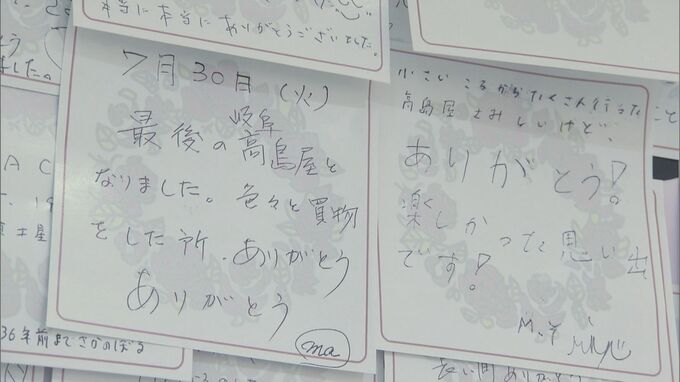 本当に本当にありがとうございました。
7月30日(火)
最後の岐阜高島屋と
なりました。色々と買物
をした所、ありがとう
ありがとう
ma
小さいころからたくさん行った
高島屋 さみしいけど、
ありがとう!
楽しかった思い出
です!
M.Y
36年前までさかのぼる
長い間ありがとう